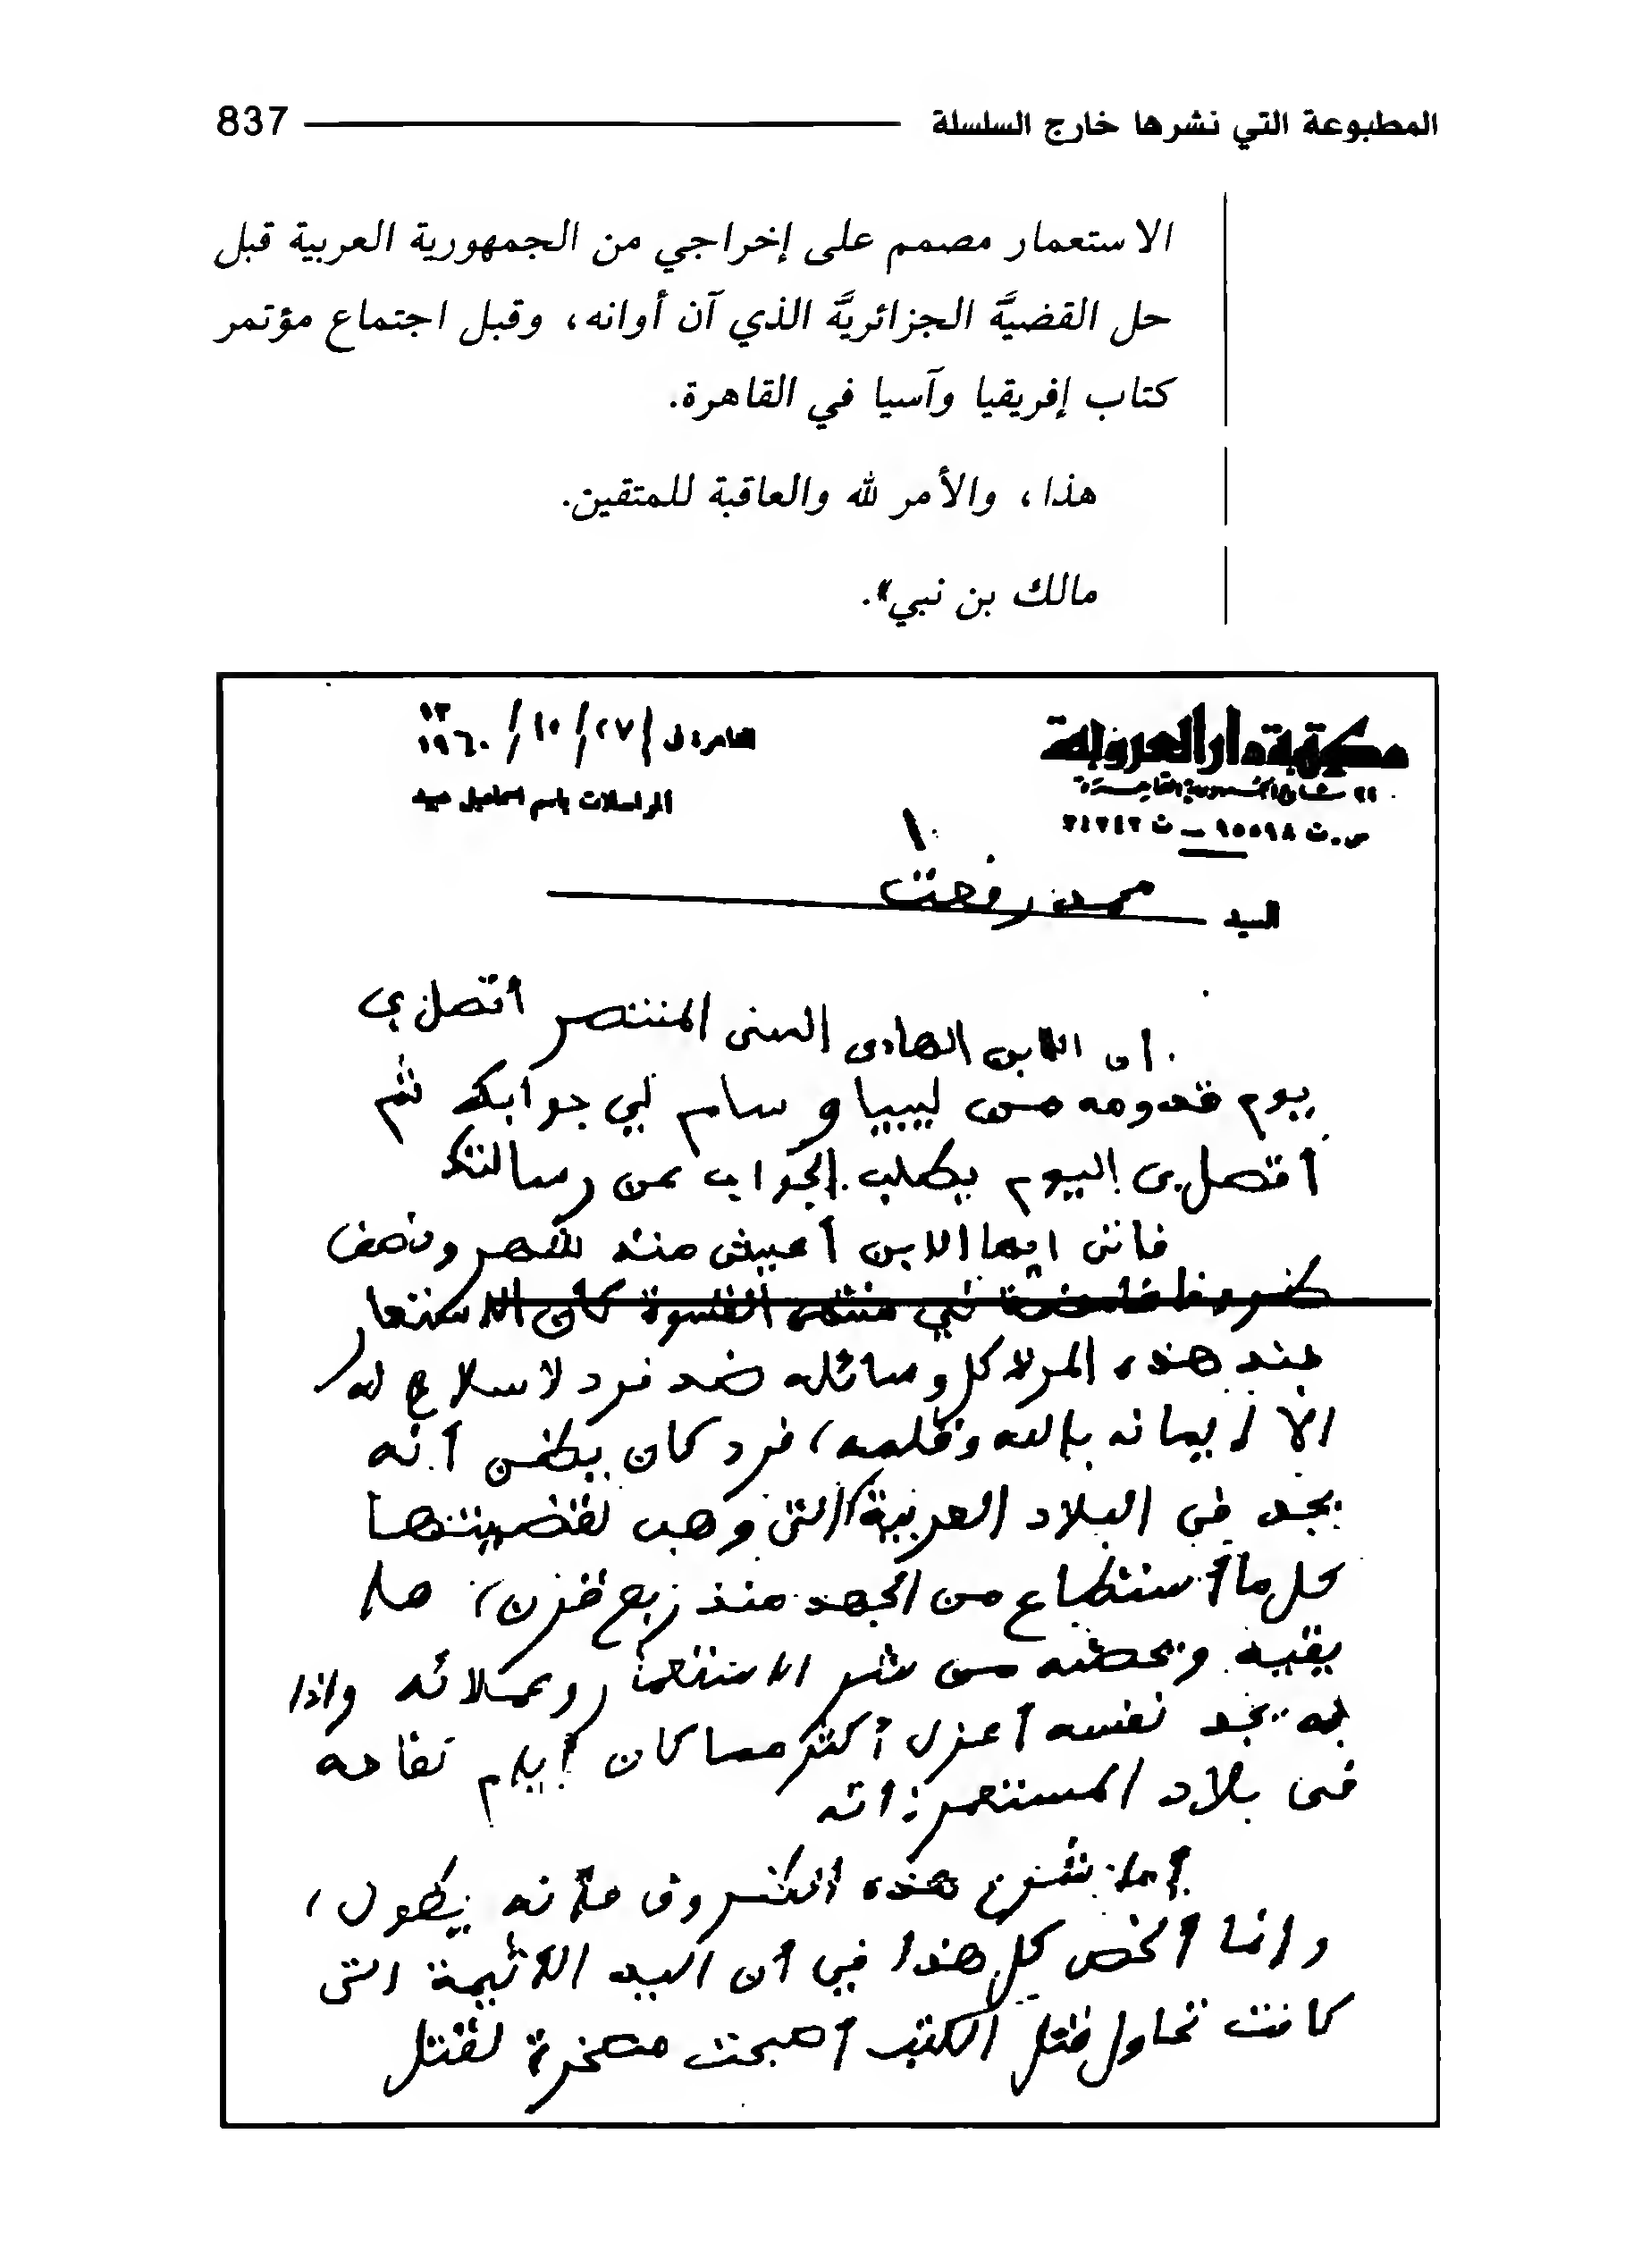 المطبوعة التي نشرها خارج السلسلة 837
الاستعمار مصمم على إخراجي من الجمهورية العربية قبل
حل القضيَّة الجزائريَّة الذي آن أوانه، وقبل اجتماع مؤتمر
كتاب إفريقيا وآسيا في القاهرة.
هذا، والأمر لله والعاقبة للمتقين.
مالك بن نبي».
مكتبة دار العروبة
القاهرة في ٢٧/١٠/١٩٦٠
٢٢ شارع الجمهورية القاهرة
المراسلات باسم اسماعيل عبيد
س.ت ٩٥٥٩٨ – ت
السيد محمد رفعت
ان الابن الهادى السنى المنتصر اتصل بي
يوم قدومه من ليبيا و سلم لي جوابك ثم
أتصل بى اليوم يطلب الجواب عن رسالتك
فانى ايها الابن أعيش منذ شهر ونصف
ظروفا غامضة في منتهى القسوة كأن الاستعمار
جند هذه المرة كل وسائله ضد فرد لا سلاح له
الا إيمانه بالله وقلمه، فرد كان يظن أنه
يجد في البلاد العربية التى وهب لقضيتها
كل ما أستطاع من الجهد منذ ربع قرن، ما
يقيه ويحصنه من شر الاستعمار وعملائه واذا
به يجد نفسه أعزل أكثر مما كان أيام كفاحه
فى بلاد المستعمر ذاته
أما شرح هذه الظروف فأنه يطول،
وانا ألخص كل هذا في أن اليد الاثيمة التى
كانت تحاول قتل الكتب أصبحت مسخرة لقتل